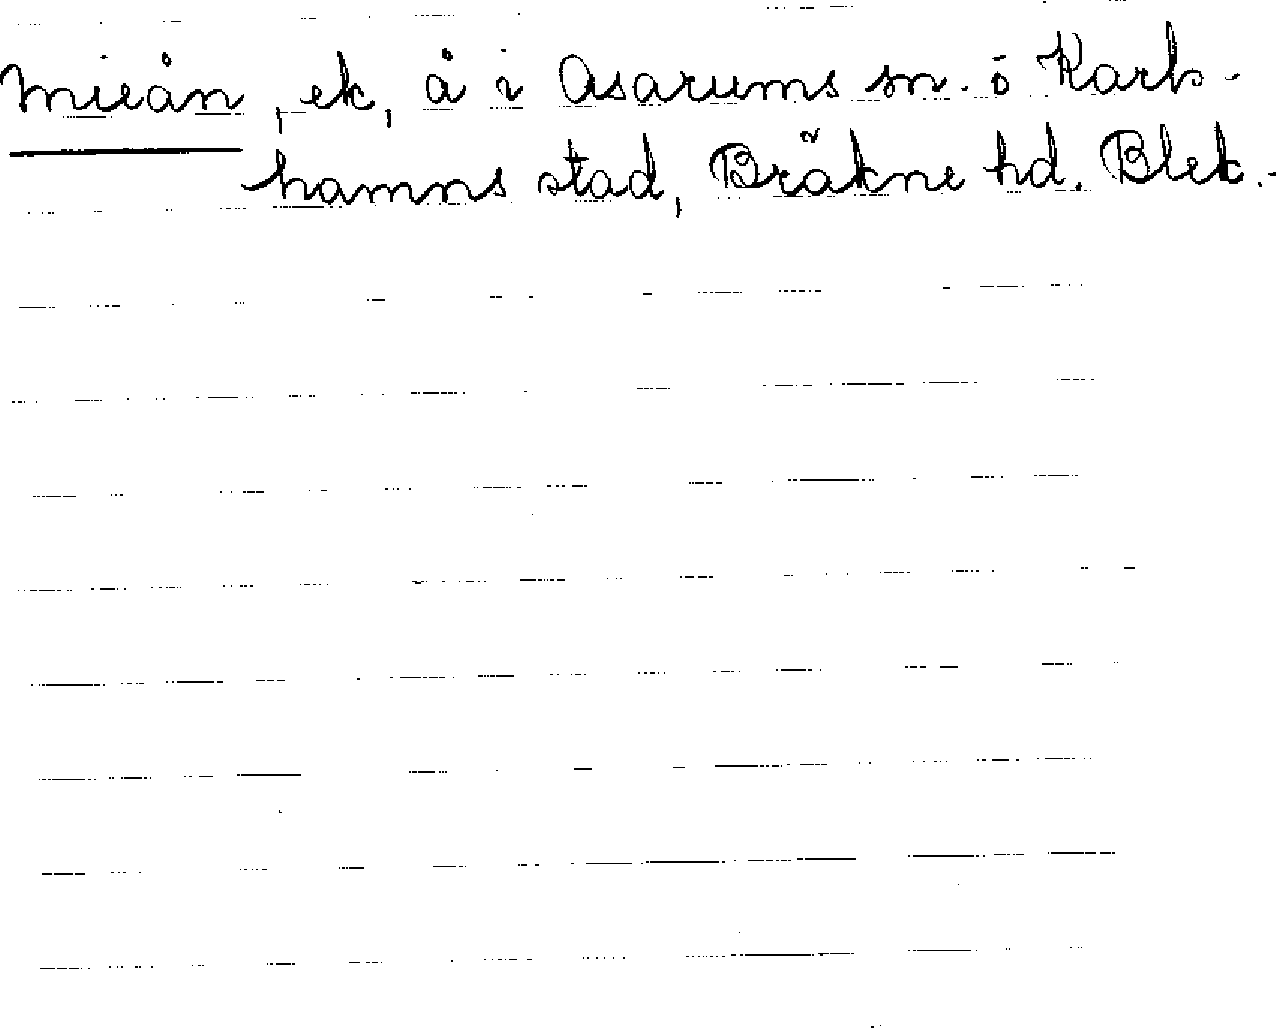 Mieån, ek, å i Asarums sn. o Karls-
hamns stad, Bräkne hd. Blek.